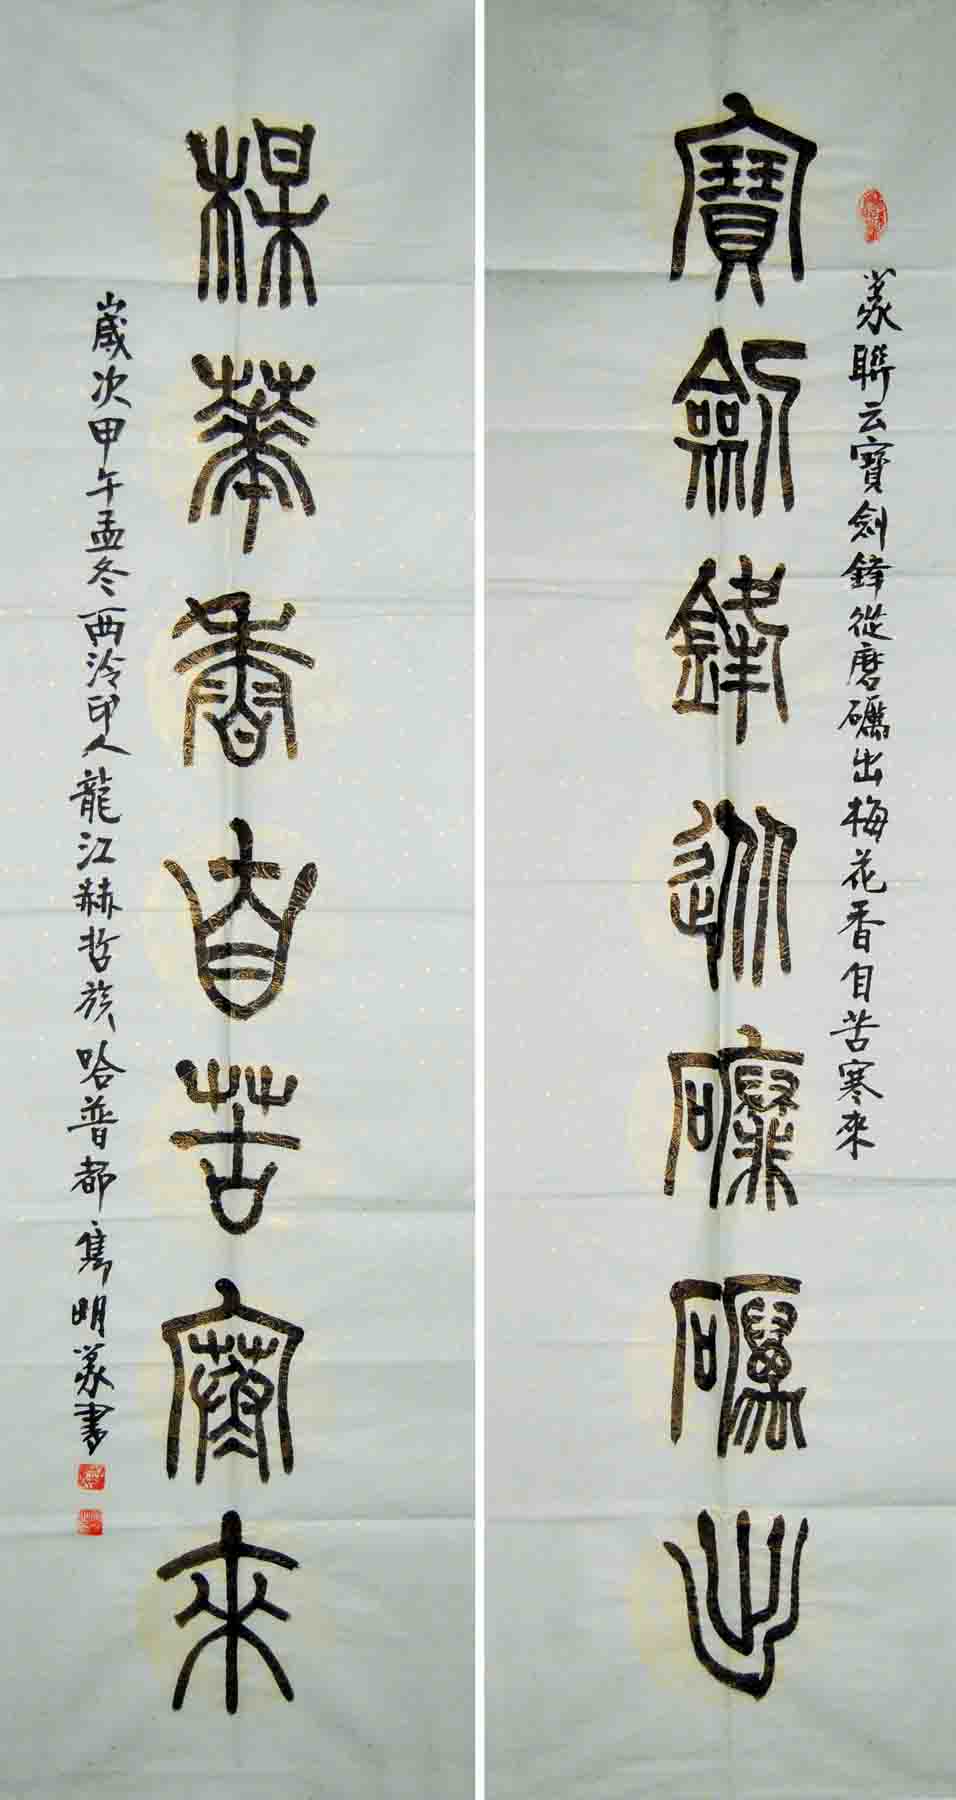 篆聯云寶劍鋒從磨礪出梅花香自苦寒來
寶劍鋒從磨礪出
楳華香自苦寒來
歲次甲午孟冬西泠印人龍江赫哲族哈普都雋明篆書